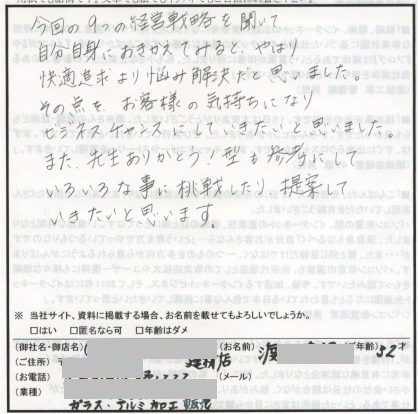 今回の9つの経営戦略を聞いて
自分自身におきかえてみると、やはり
快適追求より悩み解決だと思いました。
その点を、お客様の気持ちになり
ビジネスチャンスにしていきたいと思いました。
また、先生ありがとう！型も参考にして
いろいろな事に挑戦したり、提案して
いきたいと思います。
※ 当社サイト、資料に掲載する場合、お名前を載せてもよろしいでしょうか。
□はい □匿名なら可 □年齢はダメ
(御社名・御店名) (お名前) 渡 (年齢) 52才
(ご住所) 〒 店
(お電話) (メール)
(業種)
ガラス・アルミ加工 販売